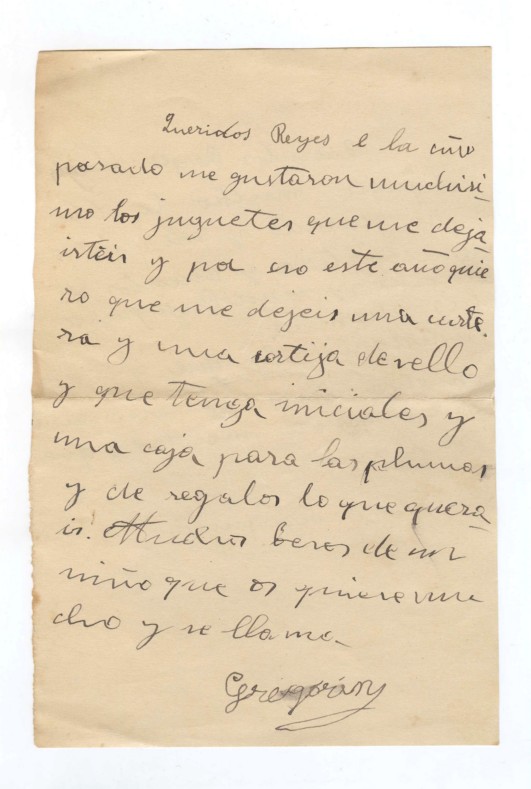 Queridos Reyes e la año
pasado me gustaron muchisi-
mo los juguetes que me deja-
isteis y por eso este año quie
ro que me dejeis una carte-
ra y una sortija de sello
y que tenga iniciales y
una caja para las plumas
y de regalos lo que quera-
is. Muchos besos de un
niño que os quiere mu
cho y se llama